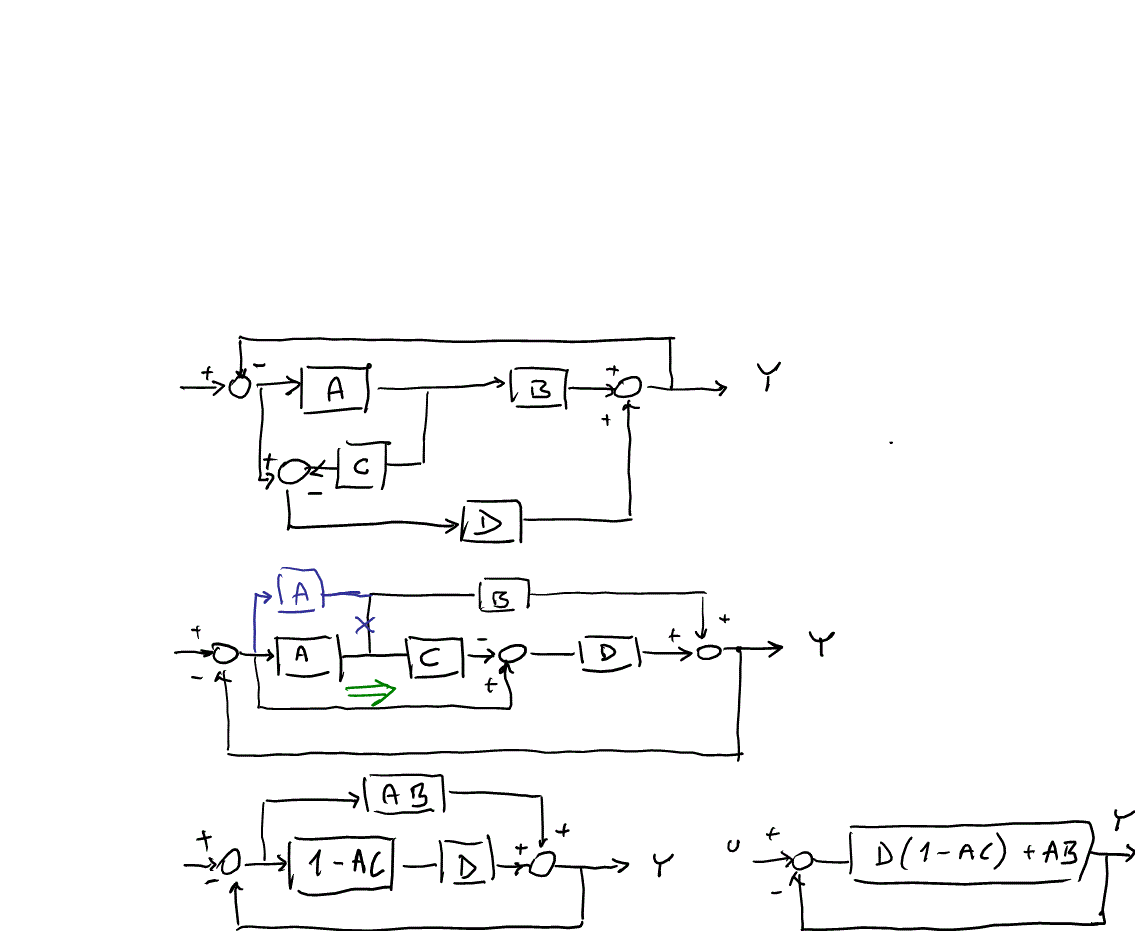 + - A B + Y
+
+ C
-
D
A B +
+ A C - D + Y
- +
A B
+ +
1-AC D + Y
-
+
U D(1-AC)+AB Y
-